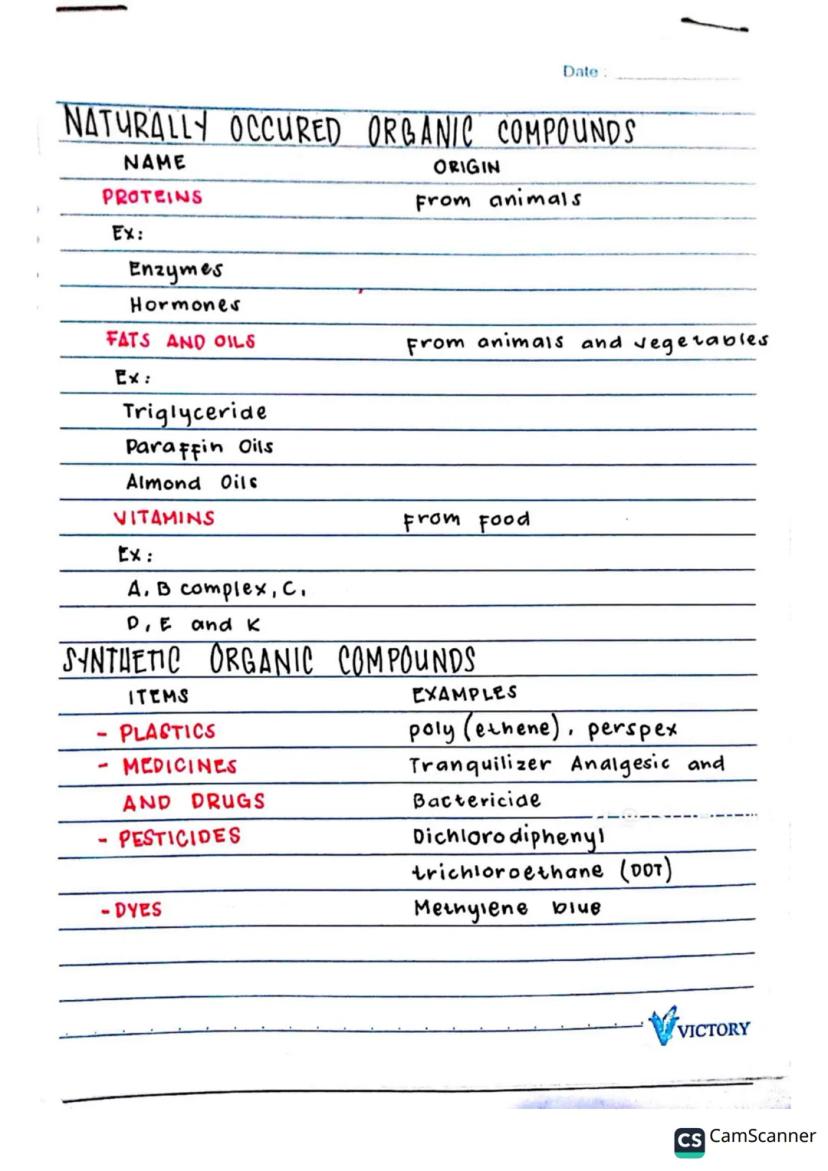 Date :
NATURALLY OCCURED ORGANIC COMPOUNDS
NAME ORIGIN
PROTEINS From animals
Ex:
Enzymes
Hormones
FATS AND OILS From animals and vegetables
Ex:
Triglyceride
Paraffin Oils
Almond Oils
VITAMINS From Food
Ex:
A, B complex, C,
D, E and K
SYNTHETIC ORGANIC COMPOUNDS
ITEMS EXAMPLES
- PLASTICS poly (ethene), perspex
- MEDICINES Tranquilizer Analgesic and
AND DRUGS Bactericide
- PESTICIDES Dichlorodiphenyl
trichloroethane (DDT)
- DYES Methylene blue
VICTORY
CS CamScanner